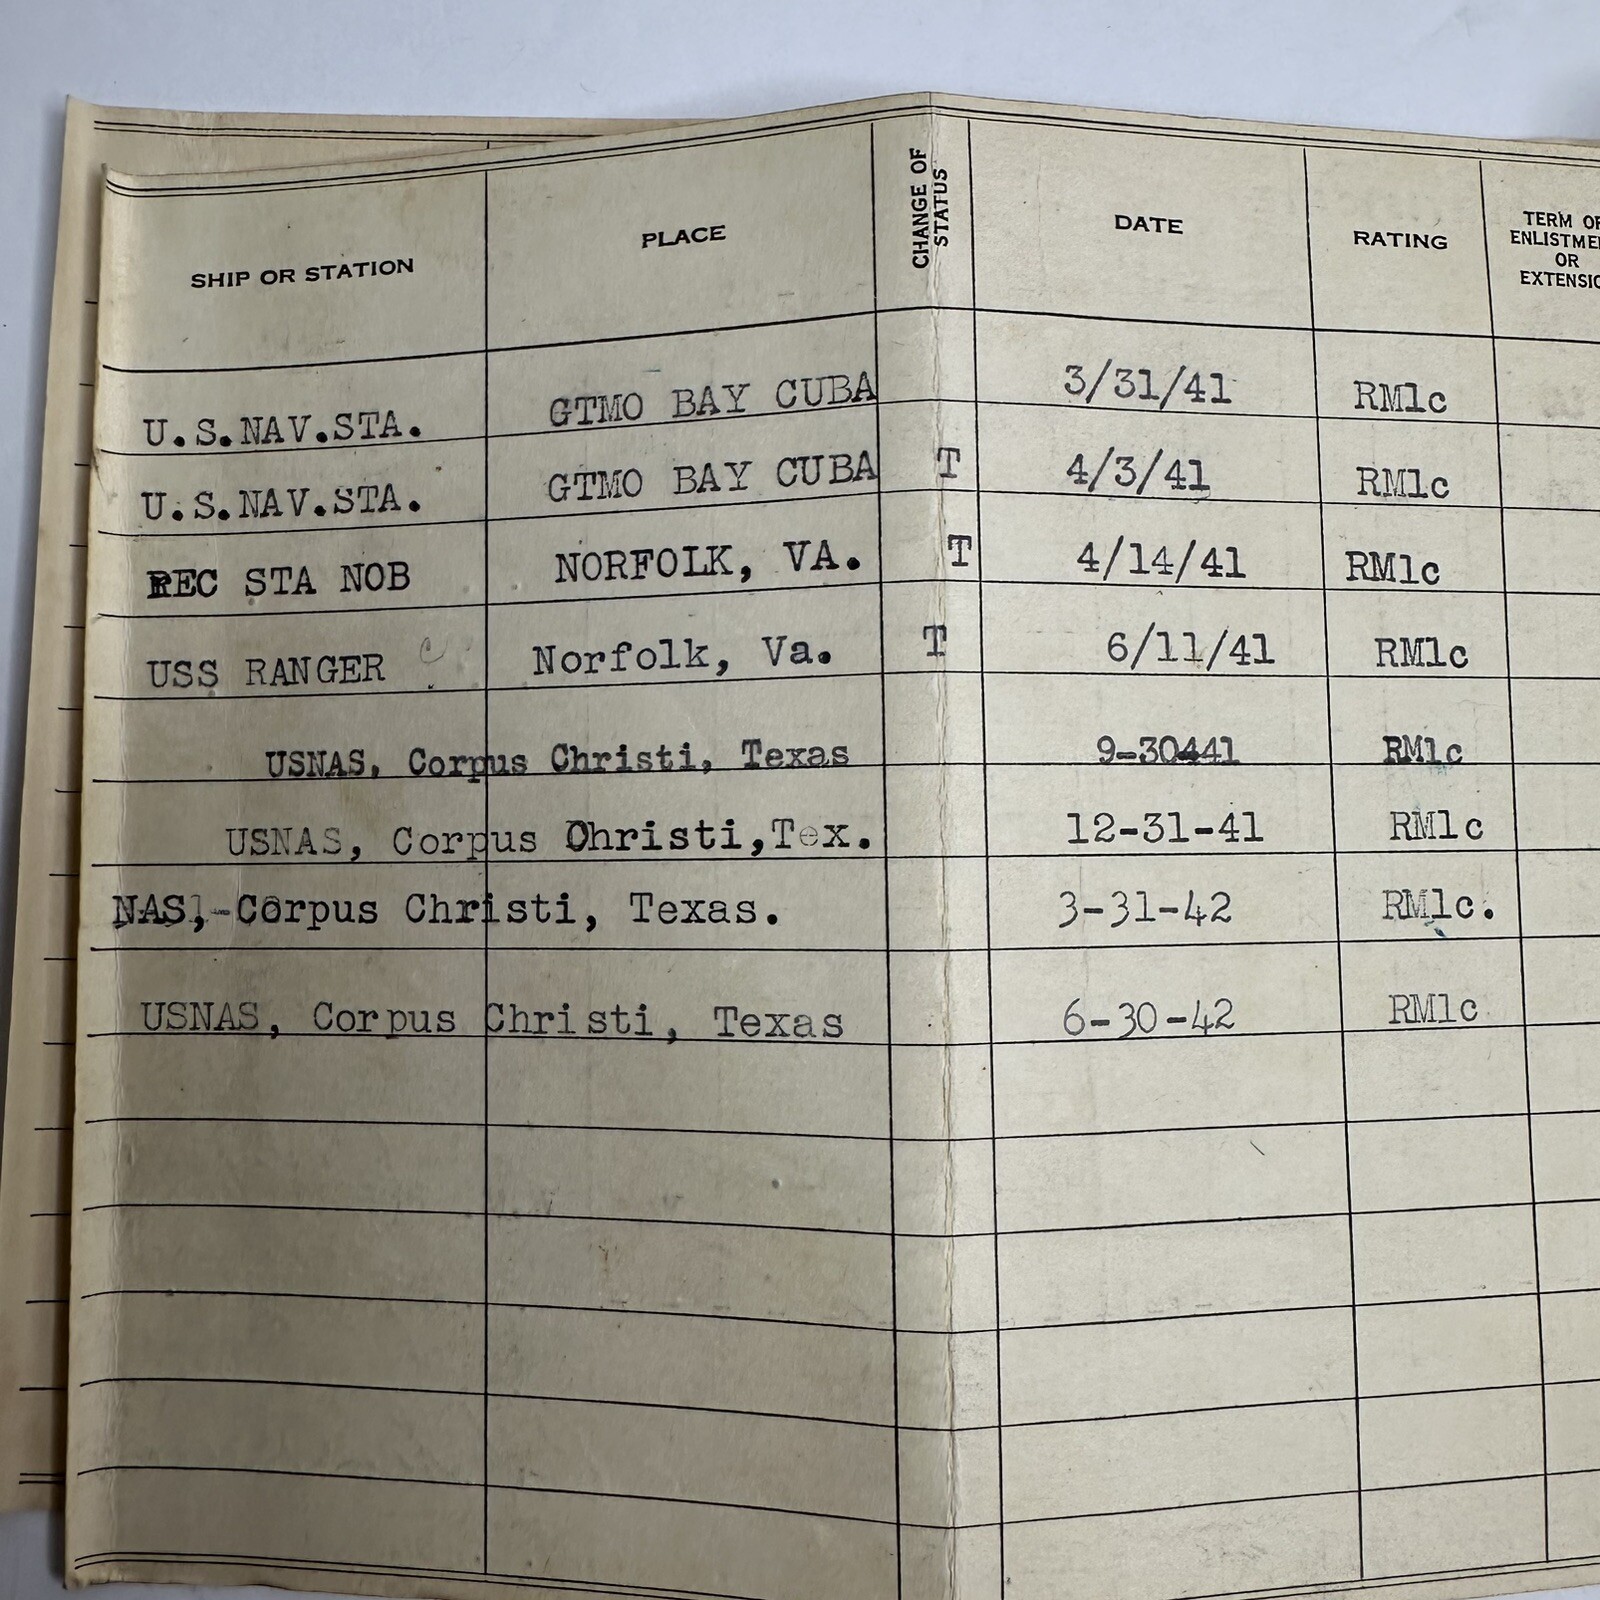 SHIP OR STATION PLACE CHANGE OF STATUS DATE RATING TERM OF ENLISTME OR EXTENSIO
U.S.NAV.STA. GTMO BAY CUBA 3/31/41 RM1c
U.S.NAV.STA. GTMO BAY CUBA T 4/3/41 RM1c
REC STA NOB NORFOLK, VA. T 4/14/41 RM1c
USS RANGER C Norfolk, Va. T 6/11/41 RM1c
USNAS, Corpus Christi, Texas 9-30-41 RM1c
USNAS, Corpus Christi,Tex. 12-31-41 RM1c
NAS, Corpus Christi, Texas. 3-31-42 RM1c.
USNAS, Corpus Christi, Texas 6-30-42 RM1c